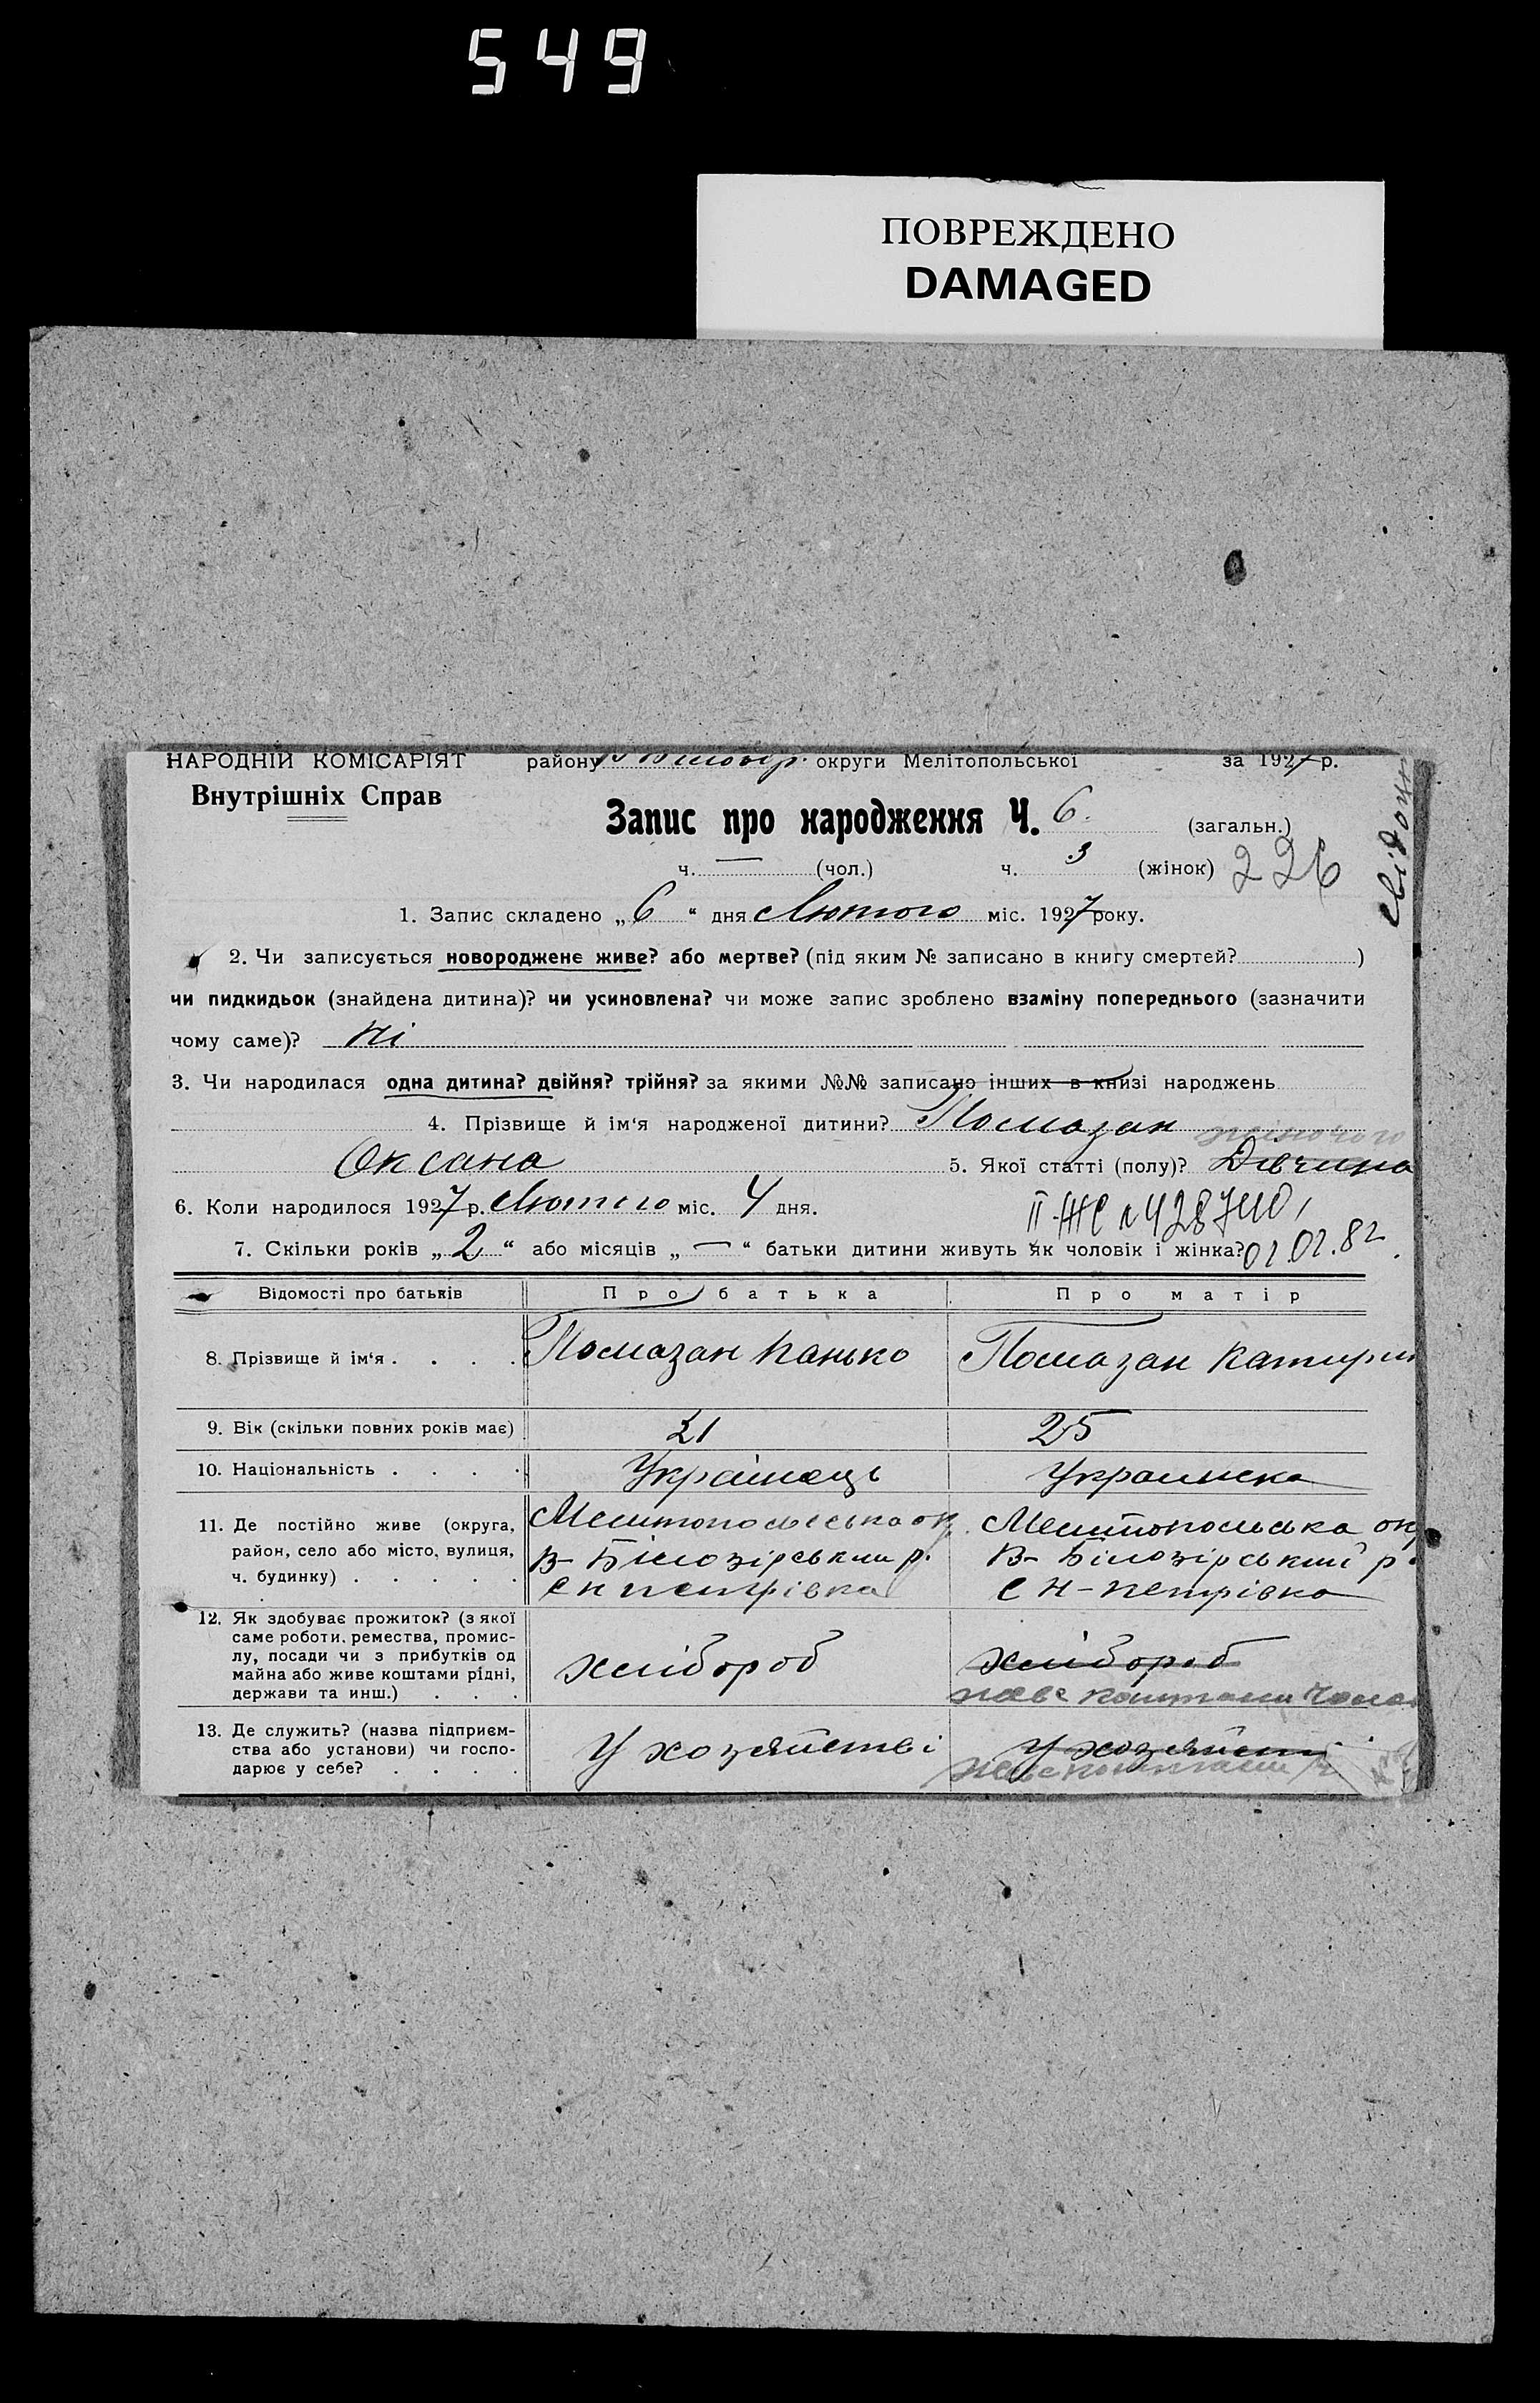 549
ПОВРЕЖДЕНО
DAMAGED
НАРОДНІЙ КОМІСАРІЯТ району округи Мелітопольської за 1927 р.
Внутрішніх Справ
Запис про народження Ч. 6. (загальн.)
ч. — (чол.) ч. 3 (жінок) 226
1. Запис складено „6“ дня Лютого міс. 1927 року.
2. Чи записується новороджене живе? або мертве? (під яким № записано в книгу смертей? )
чи пидкидьок (знайдена дитина)? чи усиновлена? чи може запис зроблено взаміну попереднього (зазначити
чому саме)? ні
3. Чи народилася одна дитина? двійня? трійня? за якими №№ записано інших в книзі народжень
4. Прізвище й ім‘я народженої дитини? Помазан
жіночого
Оксана 5. Якої статті (полу)? Дівчина
6. Коли народилося 1927 р. Лютого міс. 4 дня.
7. Скільки років „2“ або місяців „—“ батьки дитини живуть як чоловік і жінка? 01.02.82
Відомості про батьків Про батька Про матір
8. Прізвище й ім‘я . . . . Помазан Панько Помазан Катирин
9. Вік (скільки повних років має) 21 25
10. Національність . . . . Українець Украинска
11. Де постійно живе (округа, район, село або місто, вулиця, ч. будинку) . . . . . Мелитопольська ок. Мелитопольська ок
В-Білозірський р. В-Білозірський р.
с Н петрівка с Н-петрівка
12. Як здобуває прожиток? (з якої саме роботи, ремества, промислу, посади чи з прибутків од майна або живе коштами рідні, держави та инш.) . . . хлібороб хлібороб
живе коштами
13. Де служить? (назва підприємства або установи) чи господарює у себе? . . . . У хозяйстві У хозяйст
живе коштами